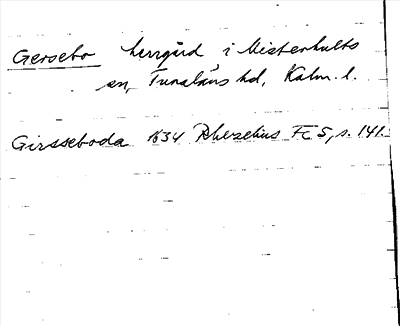 Gersebo herrgård i Misterhults
sn, Tunaläns hd, Kalm. l.
Girsseboda 1634 Rhezelius Fc 5, s. 141.